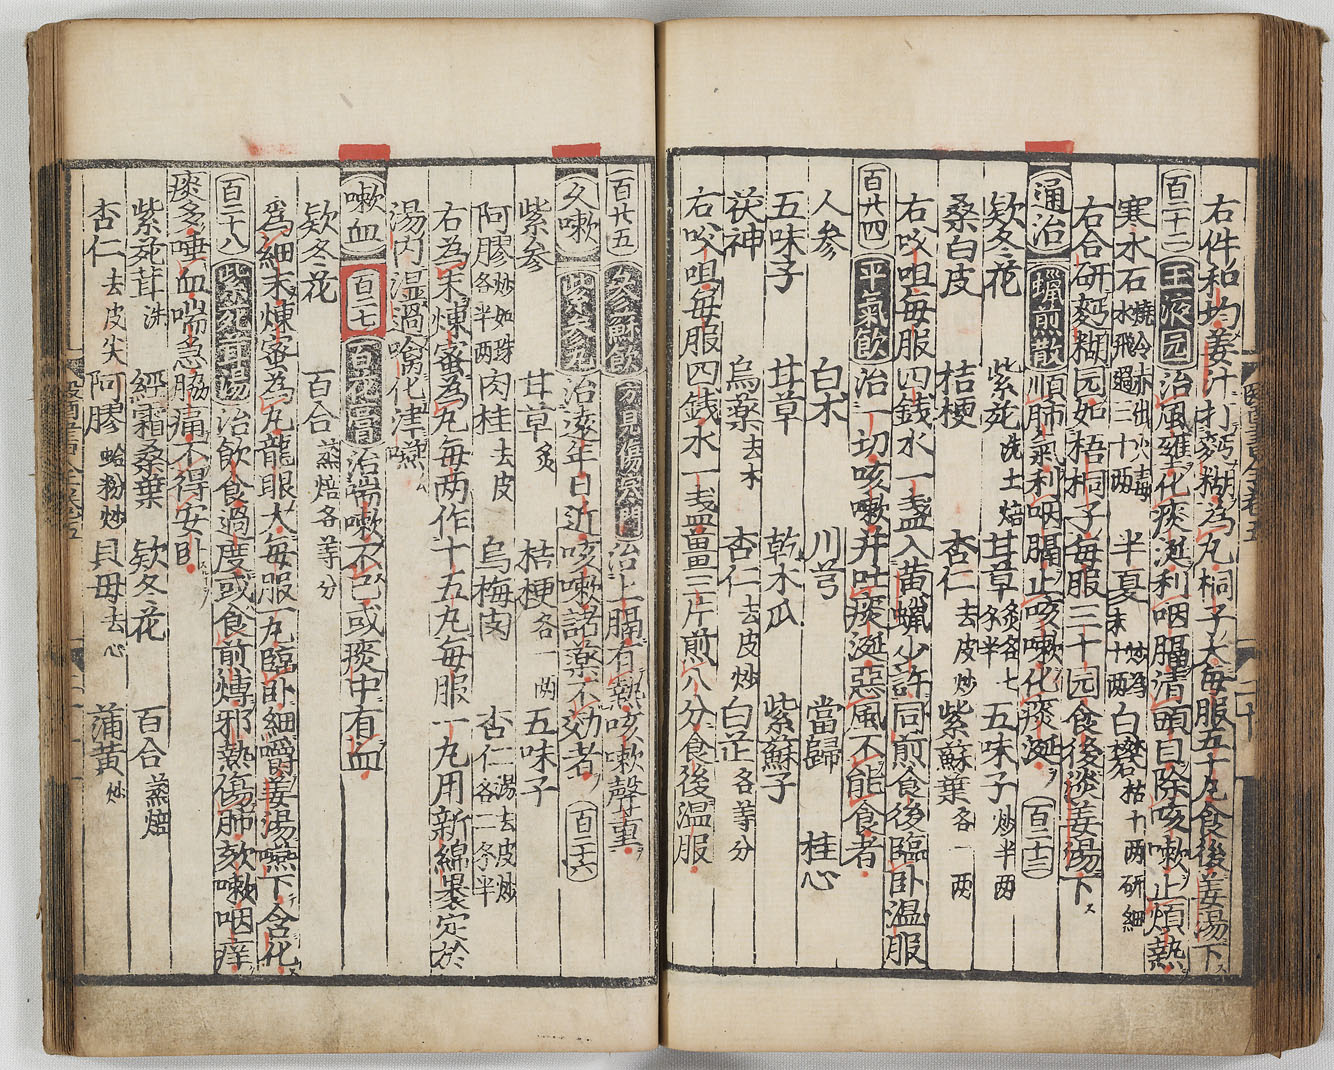 右件和均姜汁打麪糊為丸桐子大每服五十丸食後姜湯下
百二十二 玉液元 治風壅化痰涎利咽膈清頭目除咳嗽止煩熱
寒水石 燒令赤出火毒水飛過三十兩 半夏 白礬 枯十兩研細
右合研麪糊圓如梧桐子每服三十圓食後淡姜湯下
通治 百二十三 蠟煎散 順肺氣利咽膈止咳嗽化痰涎
欵冬花 紫菀 洗土焙 甘草 五味子 炒半兩
桑白皮 桔梗 杏仁 去皮炒 紫蘇葉 各一兩
右㕮咀每服四錢水一盞入黄蠟少許同煎食後臨卧温服
百廿四 平氣飲 治一切咳嗽并吐痰涎惡風不能食者
人参 白朮 川芎 當歸 桂心
五味子 甘草 乾木瓜 紫蘇子
茯神 烏藥 去木 杏仁 去皮炒 白芷 各等分
右㕮咀每服四錢水一盞薑三片煎八分食後温服
百廿五 参蘇飲 方見傷寒門 治上膈有熱咳嗽聲重
久嗽 紫参丸 治遠年日近咳嗽諸藥不効者 百二十六
紫参 甘草 炙 桔梗 各一兩 五味子
阿膠 炒如珠各半兩 肉桂 去皮 烏梅肉 杏仁 湯去皮炒各二分半
右為末煉蜜為丸每两作十五丸每服一丸用新綿裹定於
湯内湿過噙化津嚥
嗽血 百二七 百花膏 治喘嗽不已或痰中有血
欵冬花 百合 蒸焙各等分
為細末煉蜜為丸龍眼大每服一丸臨卧細嚼姜湯嚥下含化
百二十八 紫菀茸湯 治飲食過度或食煎煿邪熱傷肺欬嗽咽痒
痰多唾血喘急脇痛不得安卧
紫菀茸 洗 經霜桑葉 欵冬花 百合 蒸焙
杏仁 去皮尖 阿膠 蛤粉炒 貝母 去心 蒲黄 炒